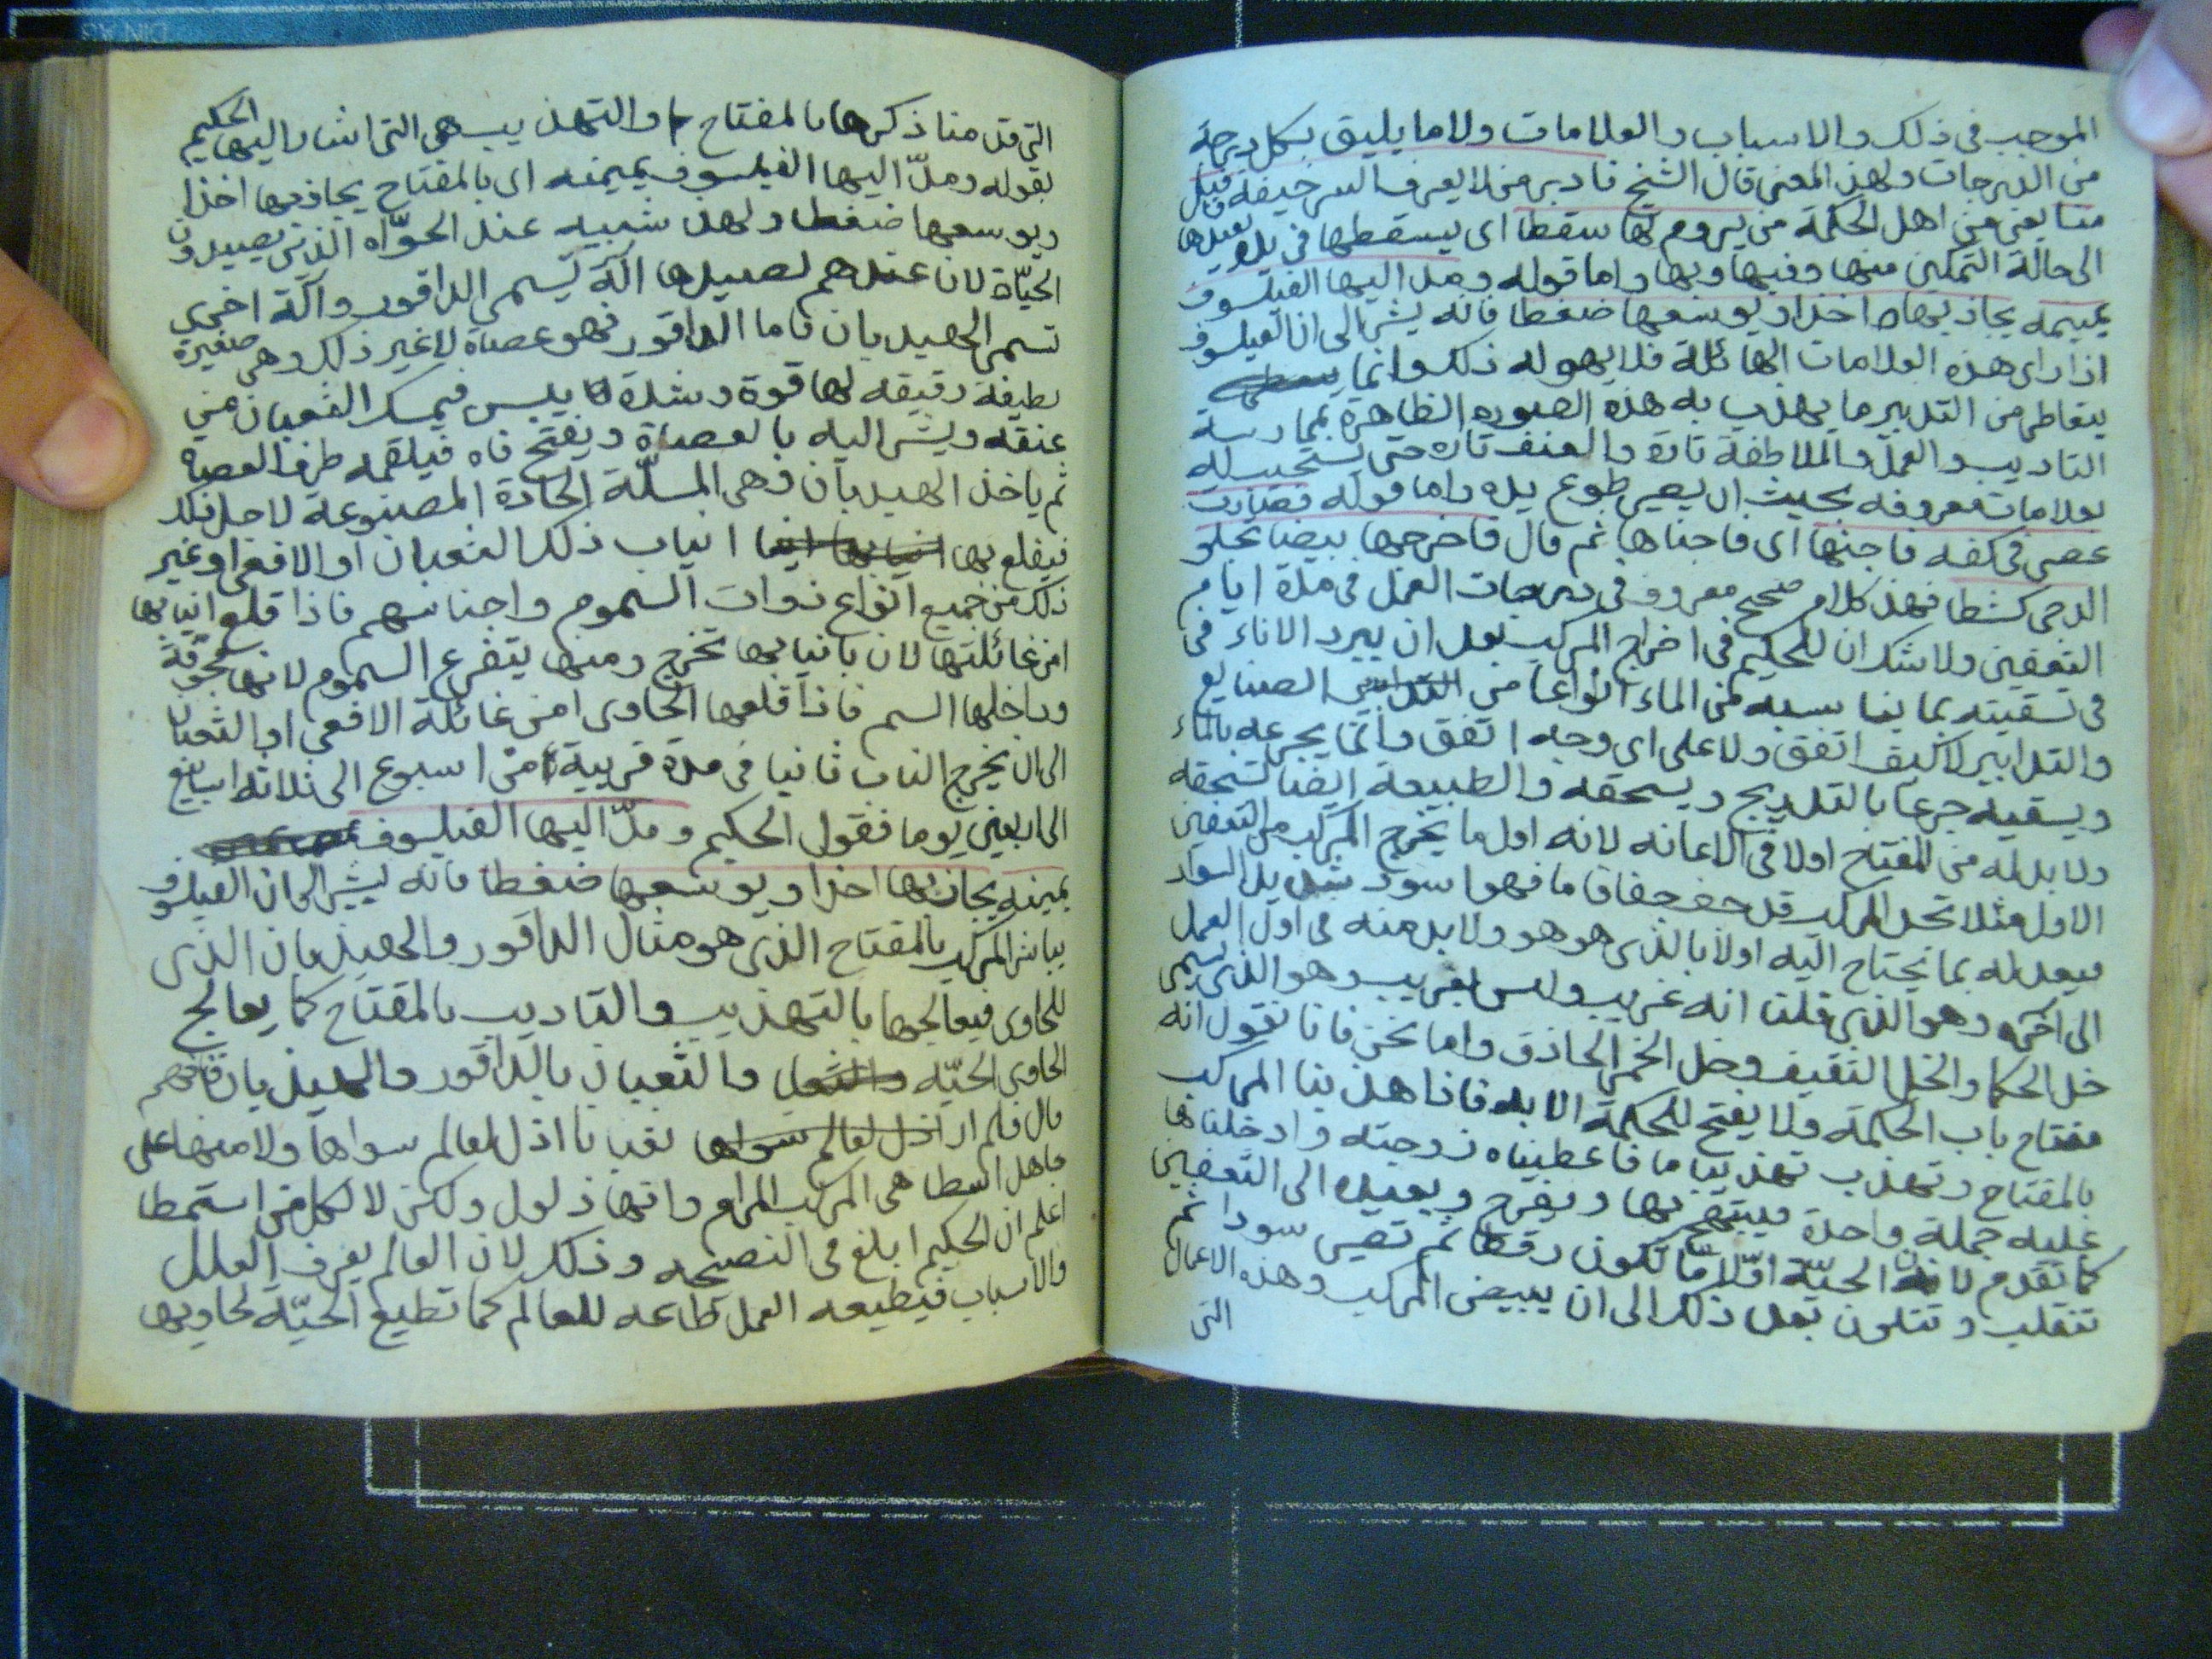 الموجب فى ذلك والاسباب والعلامات ولاما يليق بكل درجة
من الدرجات ولهذا المعنى قال الشيخ فادبر من لا يعرف السر خيفة
منا يعنى من اهل الحكمة من يروم لها سقطا اى يسقطها فى
الى حالة التمكين منها وفيها وبها واما قوله ومد اليها الفيلسوف
يمينه يجاذبها اخذا ويوسعها ضغطا فانه يشير الى ان الفيلسوف
اذا راى هذه العلامات الهائلة فلا يهوله ذلك وانما
يتعاطى من التدبير ما يهذب به هذه الصورة الظاهرة بممارسة
التاديب والعمل والملاطفة تارة والعنف تارة حتى تستجيب له
بعلامات معروفة بحيث ان يصير طوع يده واما قوله فصارت
عصى فى كفه فاجنها اى فاجناها ثم قال فاخرجها بيضا تجلو
الدجى كشطا فهذا كلام صحيح معروف فى درجات العمل فى مدة ايام
التعفين ولا شك ان للحكيم فى اخراج المركب بعد ان يبرد الاناء فى
فى تسقيته بما يناسبه من الماء انواعا من الصنايع
والتدابير لا كيف اتفق ولا على اى وجه اتفق وانما يجرعه بالماء
ويسقيه جرعا بالتدريج ويسحقه والطبيعة ايضا تسحقه
ولا بد له من المفتاح اولا فى الاعانه لانه اول ما يخرج المركب من التعفين
الاول مثلا تجد المركب قد جف جفافا ما فهو اسود شديد السواد
فيعد له بما يحتاج اليه اولا بالذى هو هو ولا بد منه فى اول العمل
الى اخره وهو الذى قلنا انه غريب وليس بغريب وهو الذى يسمى
خل الحكما والخل الثقيف وخل الخمر الحاذق واما نحن فانا نقول انه
مفتاح باب الحكمة ولا يفتح للحكمة الا به فاذا هذبنا المركب
بالمفتاح وتهذب تهذيبا ما فاعطيناه زوجته وادخلناها
عليه جملة واحدة فيبتهج بها ويفرح ويعيده الى التعفين
كما تقدم لان الحية اولا ما تكون رقطا ثم تصير سودا ثم
تتقلب وتتلون بعد ذلك الى ان يبيض المركب وهذه الاعمال
التى
التى قدمنا ذكرها بالمفتاح والتهذيب هى التى اشار اليها الحكيم
بقوله ومدّ اليها الفيلسوف يمينه اى بالمفتاح يجاذبها اخذا
ويوسعها ضغطا ولهذا شبيه عند الحوّاه الذين يصيدون
الحيّاة لان عندهم لصيدها الة تسمى الداقور والة اخرى
تسمى الهيدبان فاما الداقور فهو عصاة لا غير ذلك وهى صغيرة
لطيفة رقيقه لها قوة وشدة فيمسك الثعبان من
عنقه ويشير اليه بالعصاة ويفتح فاه فيلقمه طرف العصاة
ثم ياخذ الهيدبان وهى المسلّة الحادة المصنوعة لاجل ذلك
فيقلع بها انياب ذلك الثعبان او الافعى او غير
ذلك من جميع انواع ذوات السموم واجناسهم فاذا قلع انيابها
امن غائلتها لان بانيابها تخرج ومنها يتفرع السموم لانها مجوّفة
وداخلها السم فاذا قلعها الحاوى امن غائلة الافعى او الثعبان
الى ان يخرج الناب ثانيا فى مدة قريبة من اسبوع الى ثلاثة اسابيع
الى اربعين يوما فقول الحكيم ومدّ اليها الفيلسوف
يمينه يجاذبها اخذا ويوسعها ضغطا فانه يشير الى ان الفيلسوف
يباشر المركب بالمفتاح الذى هو مثال الداقور والهيدبان الذى
للحاوى فيعالجها بالتهذيب والتاديب بالمفتاح كما يعالج
الحاوى الحيّه والثعبان بالداقور والهيدبان فافهم
قال فلم ار اذل لعالم سواها ولا منها على
جاهل اسطا هى المركب المرام وانها ذلول ولكن لا لكل من استمطا
اعلم ان الحكيم ابلغ فى النصيحه وذلك لان العالم يعرف العلل
والاسباب فيطيعه العمل طاعه للعالم كما تطيع الحيّة لحاويها